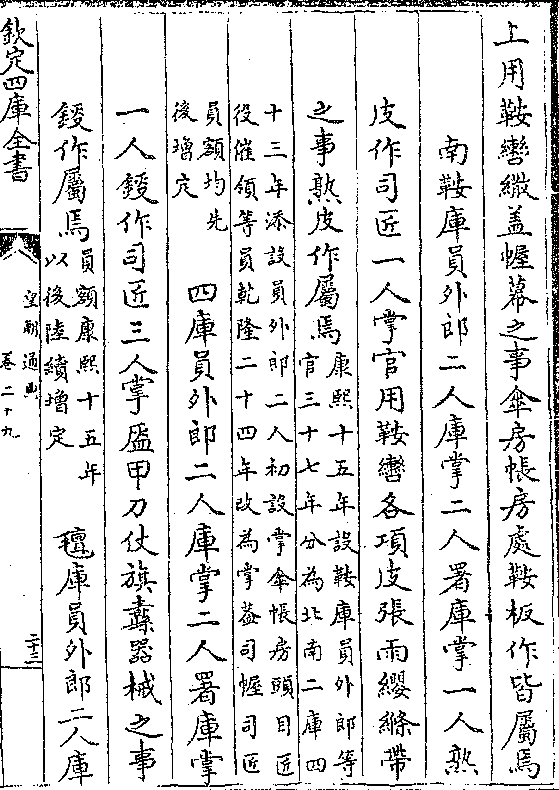 上用鞍轡繖盖幄幕之事傘房帳房處鞍板作皆屬焉
南鞍庫員外郎二人庫掌二人署庫掌一人熟
皮作司匠一人掌官用鞍轡各項皮張雨纓縧帶
之事熟皮作屬焉康熙十五年設鞍庫員外郎等
官三十七年分為北南二庫四
十三年添設員外郎二人初設掌傘帳房頭目匠
役催領等員乾隆二十四年改為掌葢司幄司匠
員額均先
後增定
四庫員外郎二人庫掌二人署庫掌
一人鋄作司匠三人掌盔甲刀仗旗纛器械之事
鋄作屬焉員額康熙十五年
以後陸續增定
氊庫員外郎二人庫
欽定四庫全書
皇朝通典
卷二十九
三十二